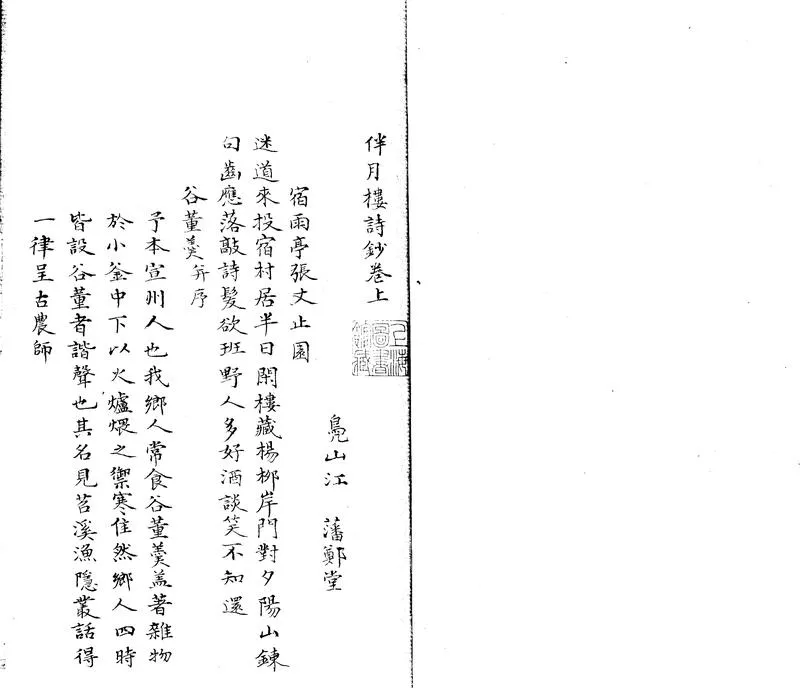 伴月樓詩鈔卷上
上海圖書館藏
鳧山江 藩鄭堂
宿雨亭張丈止園
迷道來投宿村居半日閑樓藏楊柳岸門對夕陽山鍊
句齒應落敲詩髮欲班野人多好酒談笑不知還
谷董羹并序
予本宣州人也我鄉人常食谷董羹盖著雜物
於小釜中下以火爐煨之禦寒佳然鄉人四時
皆設谷董者諧聲也其名見苕溪漁隱叢話得
一律呈古農師